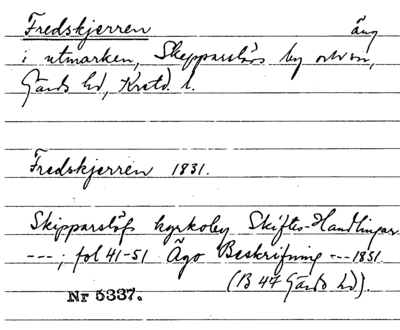 Fredskjerren äng
i utmarken, Skepparslövs by och sn,
Gärds hd, Krstd. l.
Fredskjerren 1831.
Skipparslöfs kyrkoby Skiftes-Handlingar
---; fol 41-51 Ägo Beskrifning --- 1831.
(B 47 Gärds hd).
Nr 5337.